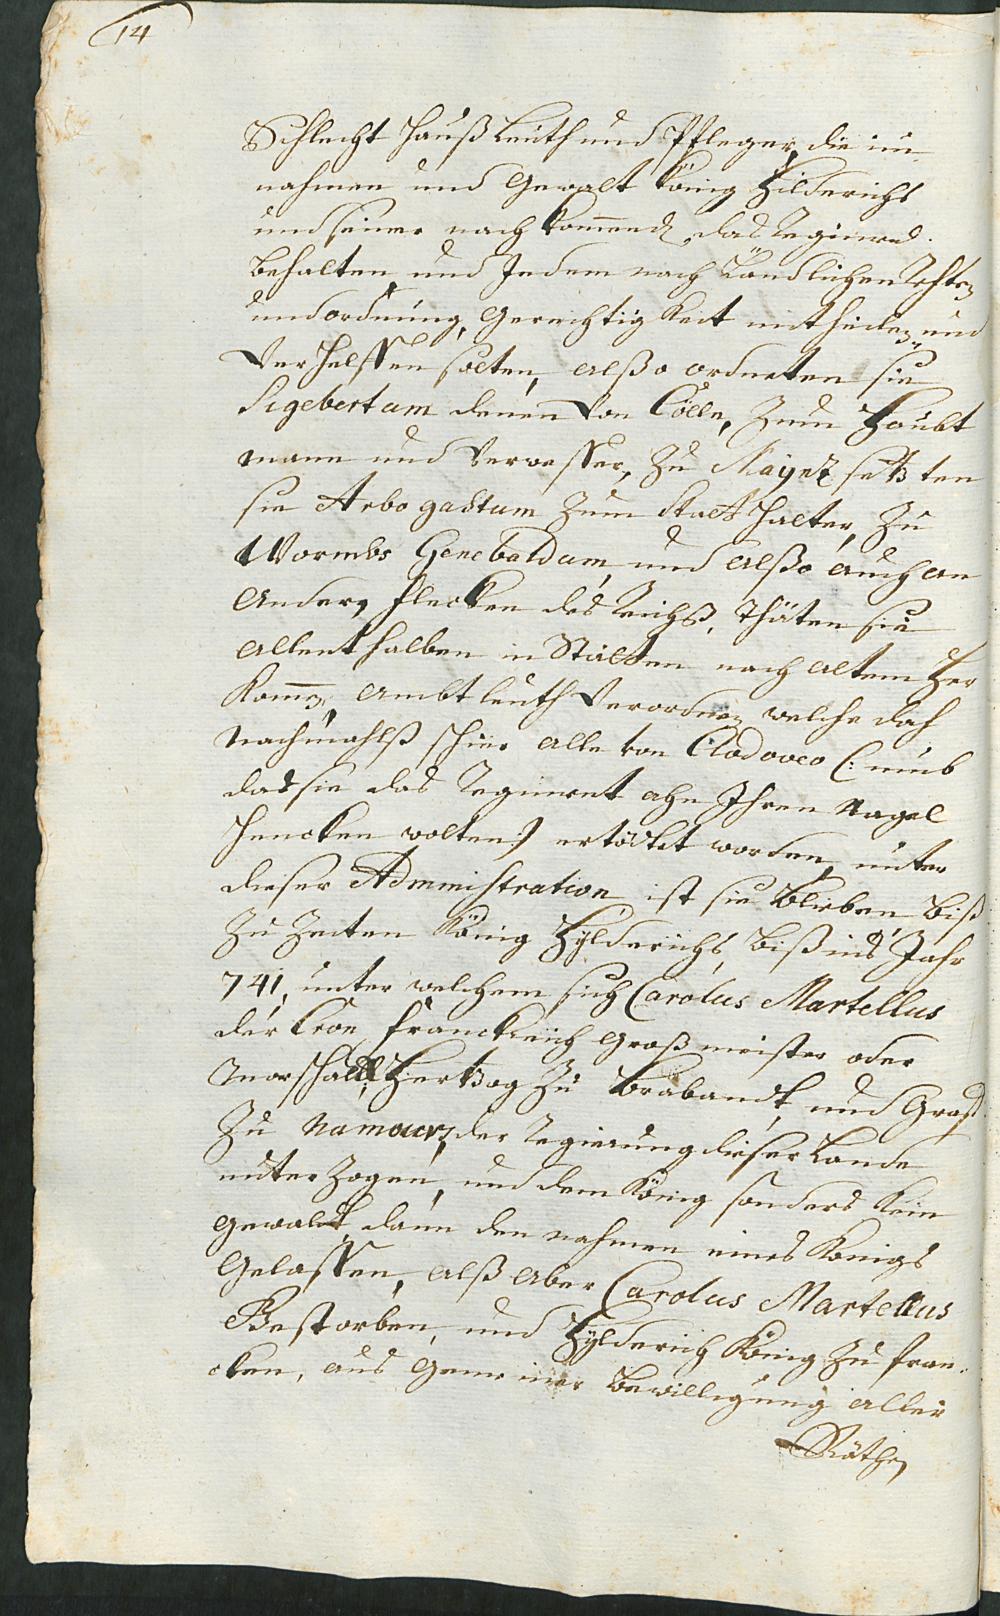 14
Schlecht Hauß Leuth und Pfleger, die im
nahmen und Gewalt König Hilderichs
und seiner nach kommend, das Regiment
behalten und Jedem nach Ländlichen Rechten
und ordnung, Gerechtigkeit mittheilen und
Verhelffen solten, alßo ordneten sie
Sigebertum denen Von Cölln, Zum Haubt
mann und Verwesser, Zu Maÿnz setzten
sie Arbogastum Zum Statthalter, Zu
Wormbs Genebaldum, und alßo auch an
Andern flecken des Reichß, thäten sie
allenthalben in Stätten nach altem Her
Komen, Ambtleuth Verordnen, welche doch
Nachmahlß schier alle von Clodoveo (: umb
das sie das Regiment ahn Ihren Nagel
hencken wolten :) ertödtet worden, unter
dieser Administration ist sie blieben, biß
Zu Zeiten König Hÿlderichs, biß ins Jahr
741, unter welchem sich Carolus Martellus
der Cron franckreich Großmeister oder
Marschall, Hertzog Zu Brabandt, und Graff
Zu Namours, der Regierung dieser Lande
unterzogen, und dem König sonders Kein
Gewalt, dann den nahmen eines Königs
Gelassen, alß aber Carolus Martellus
Gestorben, und Hÿlderich König Zu fran-
cken, aus Gemeiner bewilligung aller
Räthe,